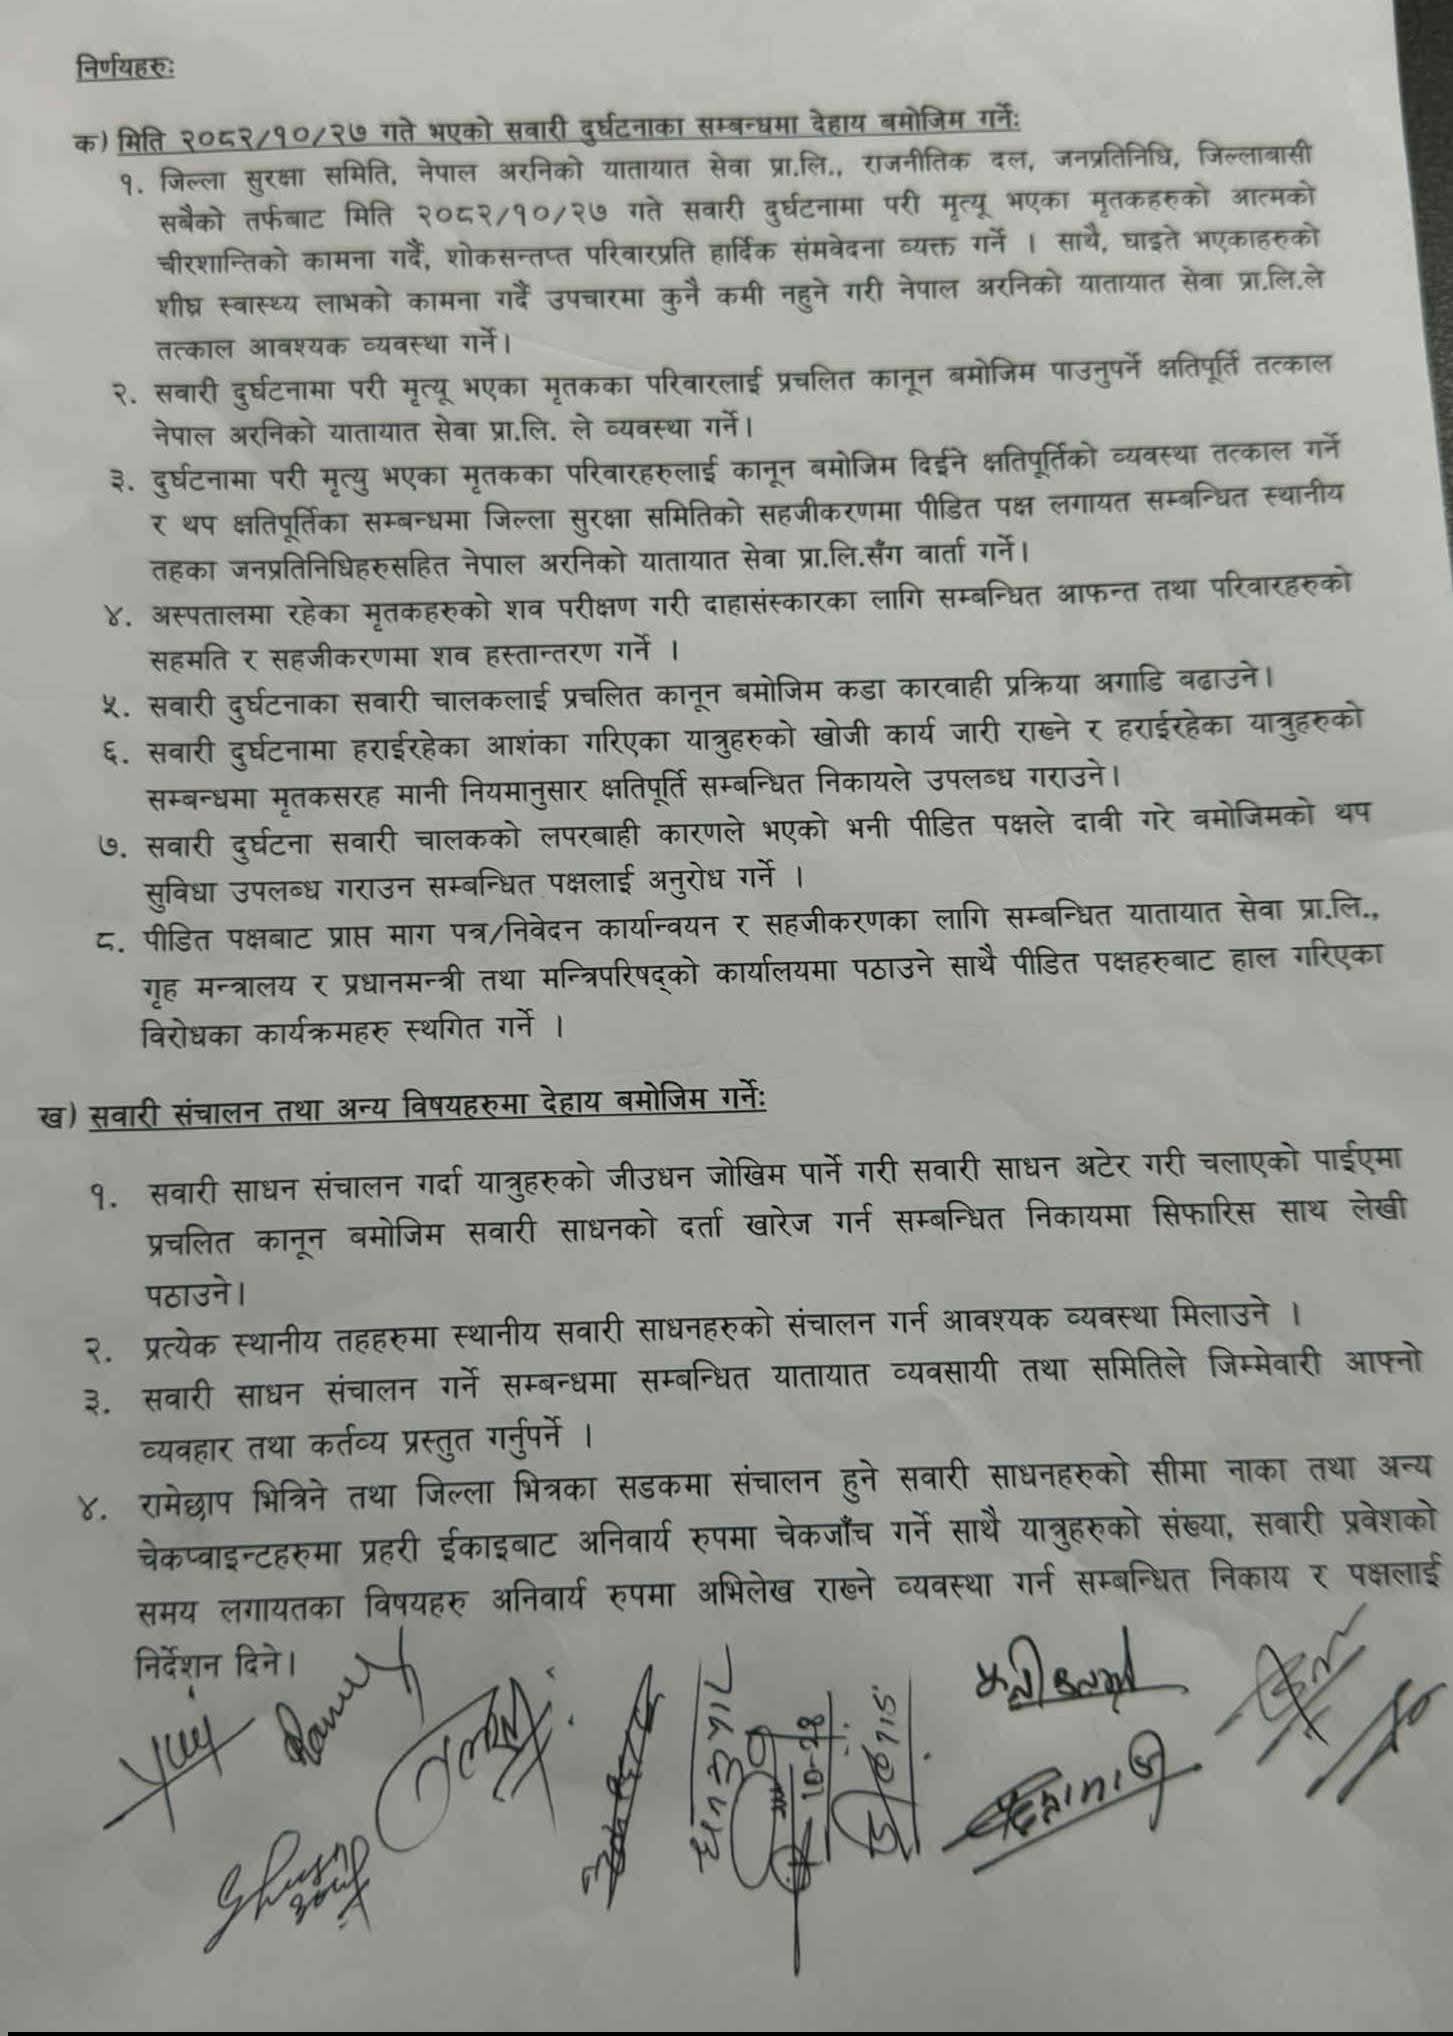 निर्णयहरुः
क) मिति २०८२/१०/२७ गते भएको सवारी दुर्घटनाका सम्बन्धमा देहाय बमोजिम गर्नेः
१. जिल्ला सुरक्षा समिति, नेपाल अरनिको यातायात सेवा प्रा.लि., राजनीतिक दल, जनप्रतिनिधि, जिल्लाबासी
सबैको तर्फबाट मिति २०८२/१०/२७ गते सवारी दुर्घटनामा परी मृत्यू भएका मृतकहरुको आत्मको
चीरशान्तिको कामना गर्दै, शोकसन्तप्त परिवारप्रति हार्दिक संमवेदना व्यक्त गर्ने । साथै, घाइते भएकाहरुको
शीघ्र स्वास्थ्य लाभको कामना गर्दै उपचारमा कुनै कमी नहुने गरी नेपाल अरनिको यातायात सेवा प्रा.लि.ले
तत्काल आवश्यक व्यवस्था गर्ने।
२. सवारी दुर्घटनामा परी मृत्यू भएका मृतकका परिवारलाई प्रचलित कानून बमोजिम पाउनुपर्ने क्षतिपूर्ति तत्काल
नेपाल अरनिको यातायात सेवा प्रा.लि. ले व्यवस्था गर्ने।
३. दुर्घटनामा परी मृत्यु भएका मृतकका परिवारहरुलाई कानून बमोजिम दिईने क्षतिपूर्तिको व्यवस्था तत्काल गर्ने
र थप क्षतिपूर्तिका सम्बन्धमा जिल्ला सुरक्षा समितिको सहजीकरणमा पीडित पक्ष लगायत सम्बन्धित स्थानीय
तहका जनप्रतिनिधिहरुसहित नेपाल अरनिको यातायात सेवा प्रा.लि.सँग वार्ता गर्ने।
४. अस्पतालमा रहेका मृतकहरुको शव परीक्षण गरी दाहासंस्कारका लागि सम्बन्धित आफन्त तथा परिवारहरुको
सहमति र सहजीकरणमा शव हस्तान्तरण गर्ने ।
५. सवारी दुर्घटनाका सवारी चालकलाई प्रचलित कानून बमोजिम कडा कारवाही प्रक्रिया अगाडि बढाउने।
६. सवारी दुर्घटनामा हराईरहेका आशंका गरिएका यात्रुहरुको खोजी कार्य जारी राख्ने र हराईरहेका यात्रुहरुको
सम्बन्धमा मृतकसरह मानी नियमानुसार क्षतिपूर्ति सम्बन्धित निकायले उपलब्ध गराउने।
७. सवारी दुर्घटना सवारी चालकको लपरबाही कारणले भएको भनी पीडित पक्षले दावी गरे बमोजिमको थप
सुविधा उपलब्ध गराउन सम्बन्धित पक्षलाई अनुरोध गर्ने ।
८. पीडित पक्षबाट प्राप्त माग पत्र/निवेदन कार्यान्वयन र सहजीकरणका लागि सम्बन्धित यातायात सेवा प्रा.लि.,
गृह मन्त्रालय र प्रधानमन्त्री तथा मन्त्रिपरिषद्को कार्यालयमा पठाउने साथै पीडित पक्षहरुबाट हाल गरिएका
विरोधका कार्यक्रमहरु स्थगित गर्ने ।
ख) सवारी संचालन तथा अन्य विषयहरुमा देहाय बमोजिम गर्नेः
१. सवारी साधन संचालन गर्दा यात्रुहरुको जीउधन जोखिम पार्ने गरी सवारी साधन अटेर गरी चलाएको पाईएमा
प्रचलित कानून बमोजिम सवारी साधनको दर्ता खारेज गर्न सम्बन्धित निकायमा सिफारिस साथ लेखी
पठाउने।
२. प्रत्येक स्थानीय तहहरुमा स्थानीय सवारी साधनहरुको संचालन गर्न आवश्यक व्यवस्था मिलाउने ।
३. सवारी साधन संचालन गर्ने सम्बन्धमा सम्बन्धित यातायात व्यवसायी तथा समितिले जिम्मेवारी आफ्नो
व्यवहार तथा कर्तव्य प्रस्तुत गर्नुपर्ने ।
४. रामेछाप भित्रिने तथा जिल्ला भित्रका सडकमा संचालन हुने सवारी साधनहरुको सीमा नाका तथा अन्य
चेकप्वाइन्टहरुमा प्रहरी ईकाइबाट अनिवार्य रुपमा चेकजाँच गर्ने साथै यात्रुहरुको संख्या, सवारी प्रवेशको
समय लगायतका विषयहरु अनिवार्य रुपमा अभिलेख राख्ने व्यवस्था गर्न सम्बन्धित निकाय र पक्षलाई
निर्देशन दिने।